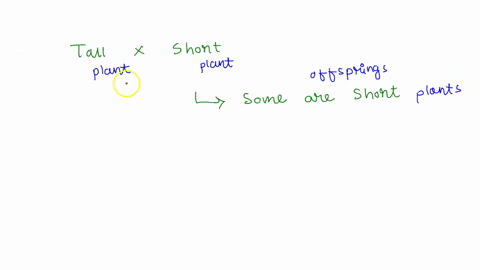 Tall x Short
plant plant
offsprings
Some are Short plants